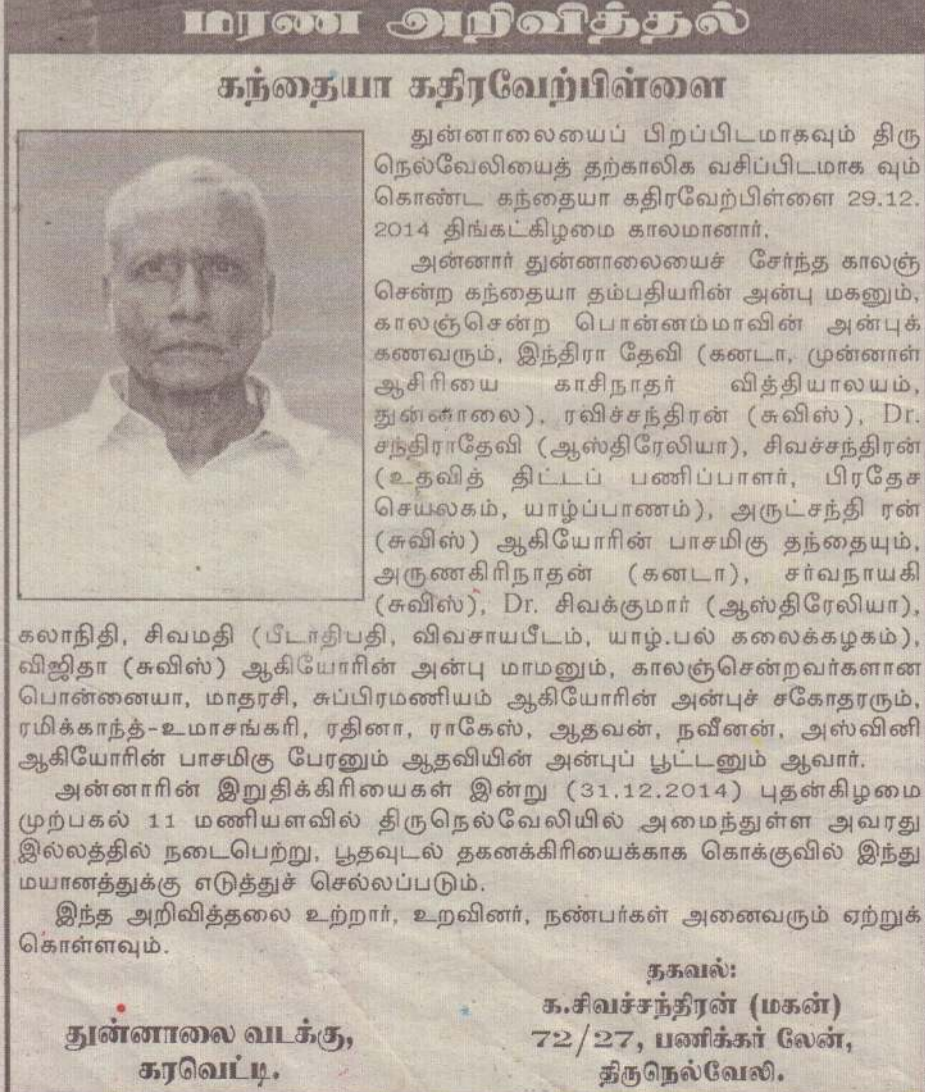 மரண அறிவித்தல்
கந்தையா கதிரவேற்பிள்ளை
துன்னாலையைப் பிறப்பிடமாகவும் திரு
நெல்வேலியைத் தற்காலிக வசிப்பிடமாக வும்
கொண்ட கந்தையா கதிரவேற்பிள்ளை 29.12.
2014 திங்கட்கிழமை காலமானார்.
அன்னார் துன்னாலையைச் சேர்ந்த காலஞ்
சென்ற கந்தையா தம்பதியரின் அன்பு மகனும்,
காலஞ்சென்ற பொன்னம்மாவின் அன்புக்
கணவரும், இந்திரா தேவி (கனடா, முன்னாள்
ஆசிரியை காசிநாதர் வித்தியாலயம்,
துன்னாலை), ரவிச்சந்திரன் (சுவிஸ்), Dr.
சந்திராதேவி (ஆஸ்திரேலியா), சிவச்சந்திரன்
(உதவித் திட்டப் பணிப்பாளர், பிரதேச
செயலகம், யாழ்ப்பாணம்), அருட்சந்தி ரன்
(சுவிஸ்) ஆகியோரின் பாசமிகு தந்தையும்,
அருணகிரிநாதன் (கனடா), சர்வநாயகி
(சுவிஸ்), Dr. சிவக்குமார் (ஆஸ்திரேலியா),
கலாநிதி, சிவமதி (பீடாதிபதி, விவசாயபீடம், யாழ்.பல் கலைக்கழகம்),
விஜிதா (சுவிஸ்) ஆகியோரின் அன்பு மாமனும், காலஞ்சென்றவர்களான
பொன்னையா, மாதரசி, சுப்பிரமணியம் ஆகியோரின் அன்புச் சகோதரரும்,
ரமிக்காந்த்-உமாசங்கரி, ரதினா, ராகேஸ், ஆதவன், நவீனன், அஸ்வினி
ஆகியோரின் பாசமிகு பேரனும் ஆதவியின் அன்புப் பூட்டனும் ஆவார்.
அன்னாரின் இறுதிக்கிரியைகள் இன்று (31.12.2014) புதன்கிழமை
முற்பகல் 11 மணியளவில் திருநெல்வேலியில் அமைந்துள்ள அவரது
இல்லத்தில் நடைபெற்று, பூதவுடல் தகனக்கிரியைக்காக கொக்குவில் இந்து
மயானத்துக்கு எடுத்துச் செல்லப்படும்.
இந்த அறிவித்தலை உற்றார், உறவினர், நண்பர்கள் அனைவரும் ஏற்றுக்
கொள்ளவும்.
துன்னாலை வடக்கு,
கரவெட்டி.
தகவல்:
க.சிவச்சந்திரன் (மகன்)
72/27, பணிக்கர் லேன்,
திருநெல்வேலி.